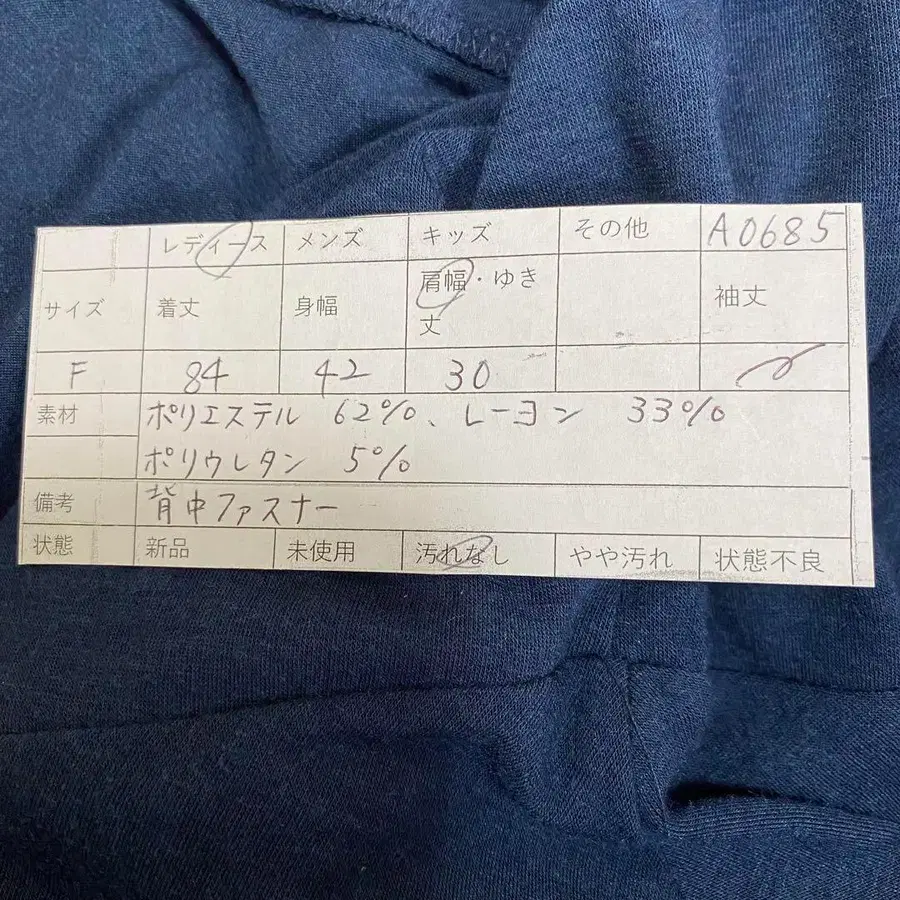 レディース メンズ キッズ その他 A0685
サイズ 着丈 身幅 肩幅・ゆき丈 袖丈
F 84 42 30
素材 ポリエステル 62%、レーヨン 33%
ポリウレタン 5%
備考 背中ファスナー
状態 新品 未使用 汚れなし やや汚れ 状態不良